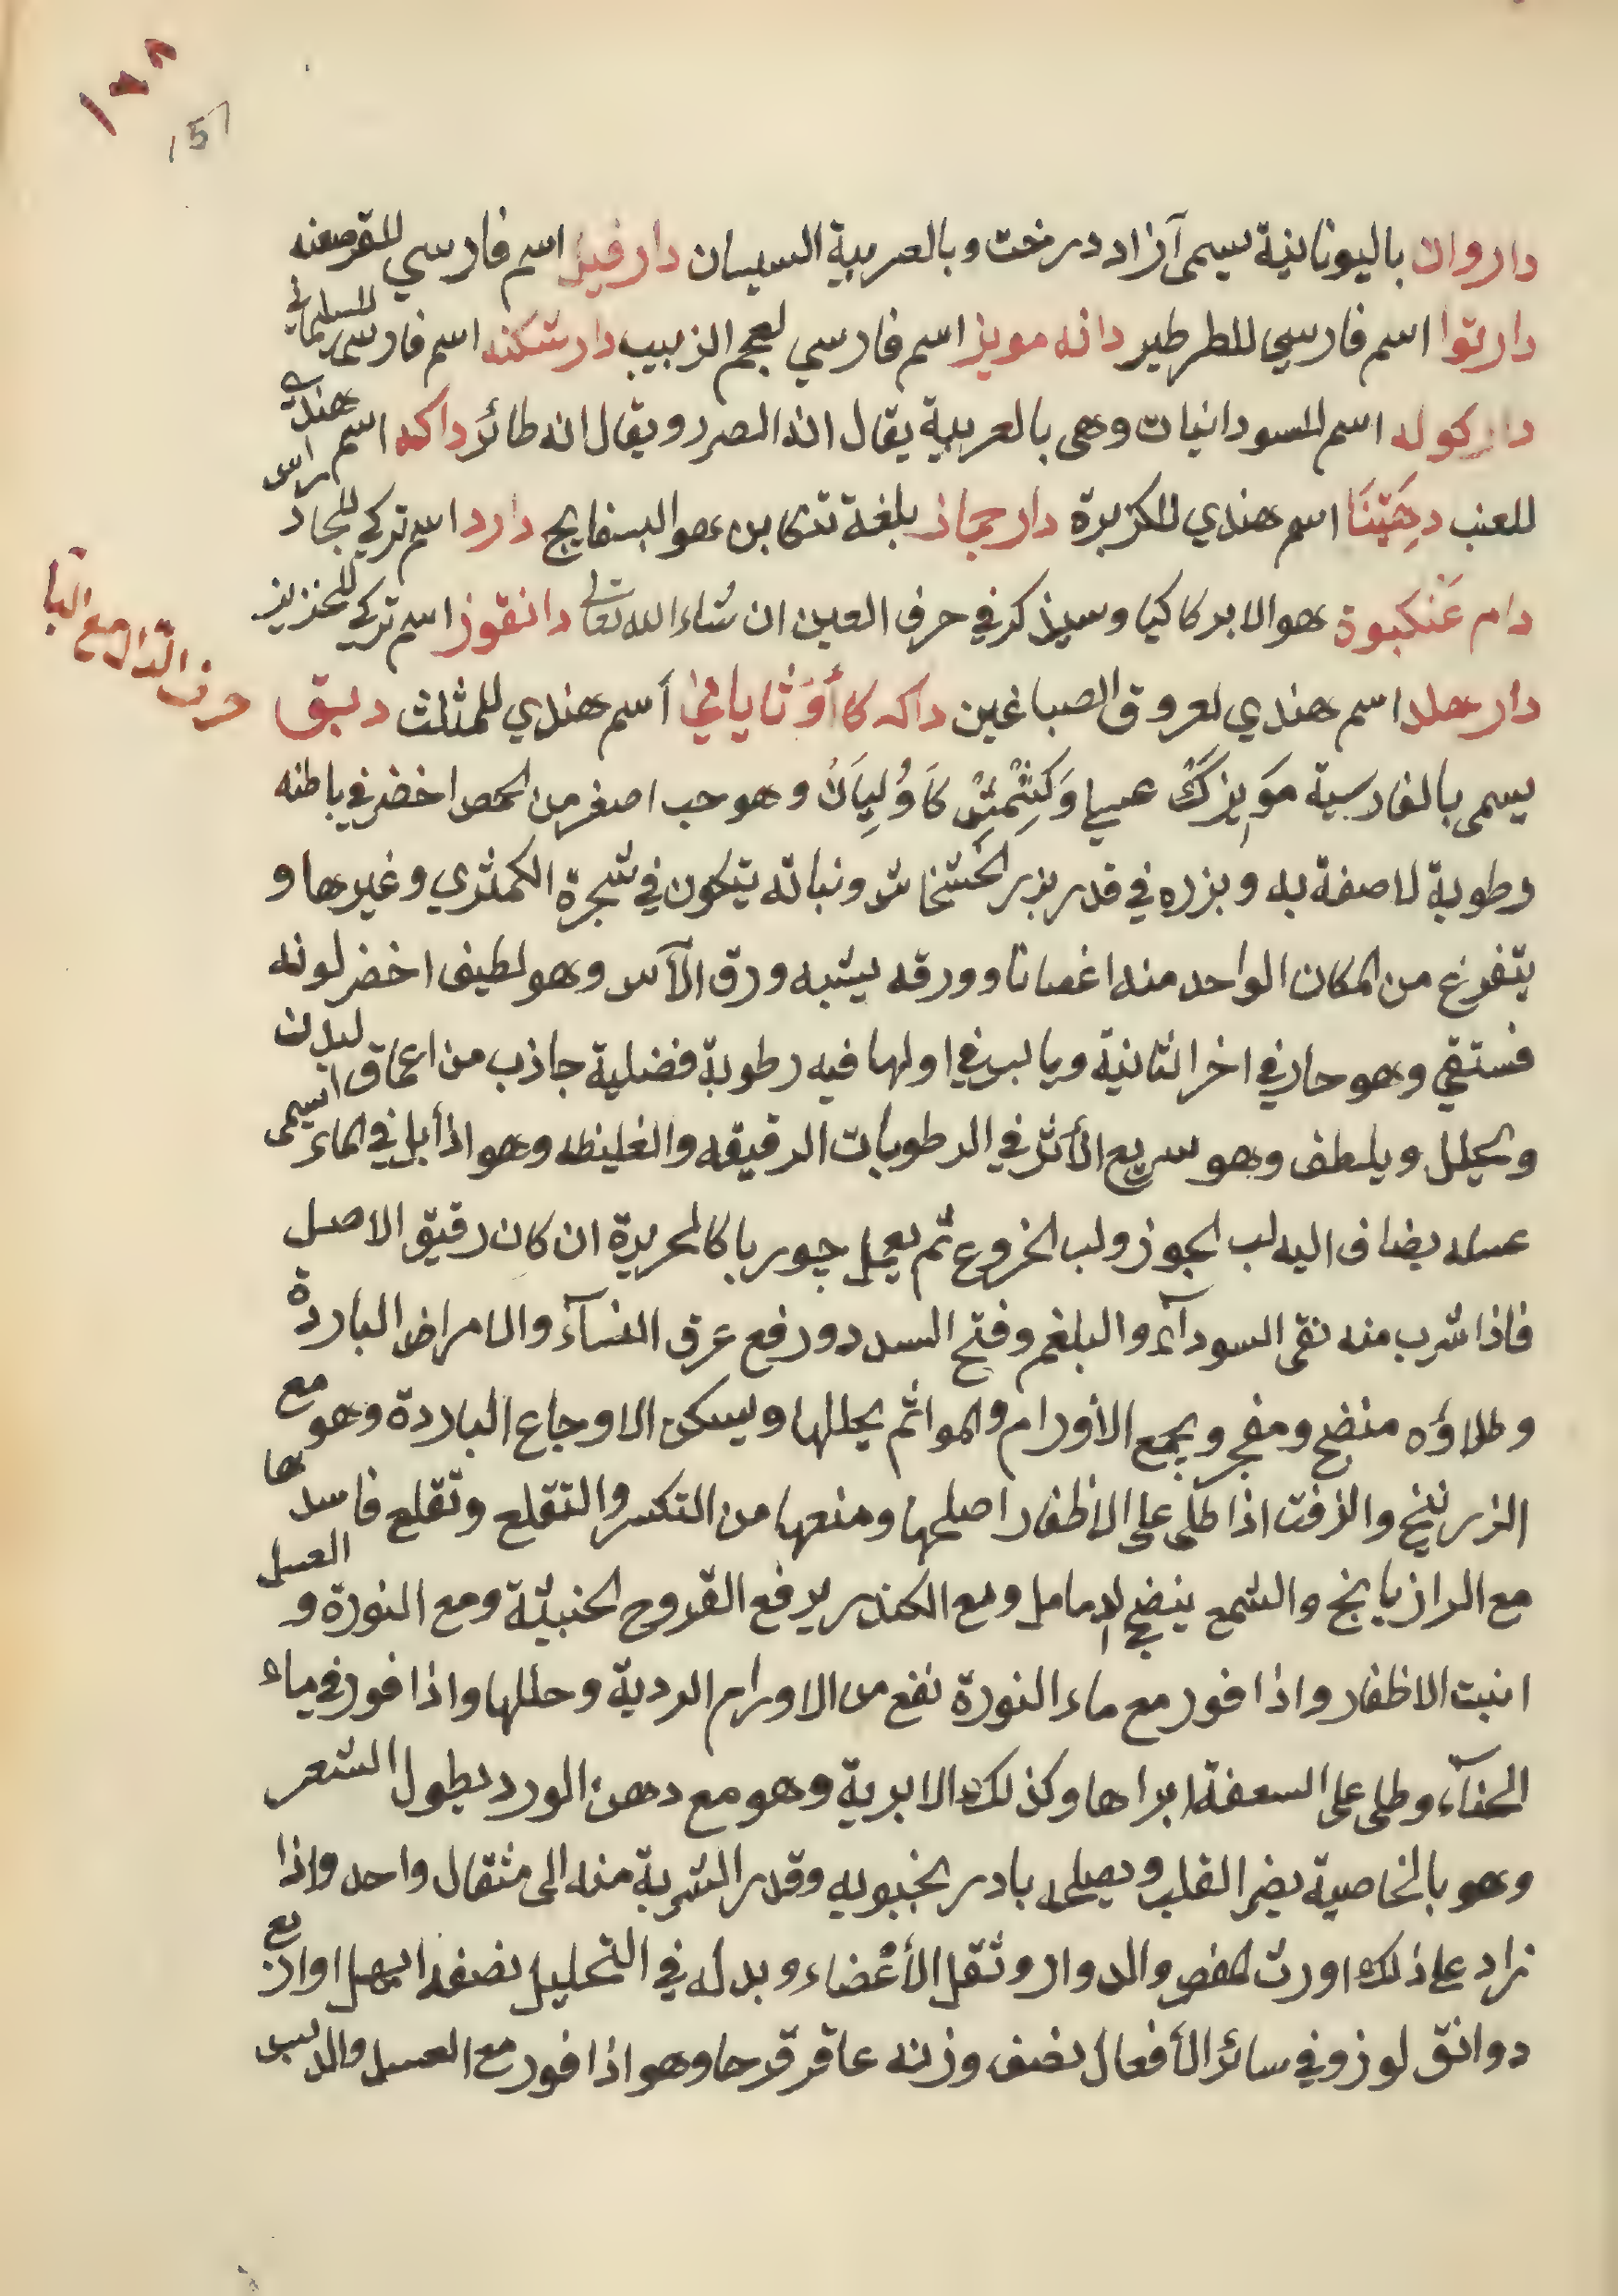 ١٣٨
157
داروان باليونانية يسمى آزاد درخت وبالعربية السيسان دار فيل اسم فارسي للقرصعنه
دار توا اسم فارسي للطرطير دانه مويز اسم فارسي لعجم الزبيب دار شكنه اسم فارسي للسليماني
دار كوله اسم للسودانيات وهي بالعربية يقال انه الصرر ويقال انه طائر داكه اسم هندي
للعنب دهتينا اسم هندي للكزبرة دار جماز بلغة تنكابن هو البسفايج دارد اسم تركي للجاد
دام عنكبوة هو الابركاكيا وسيذكر في حرف العين ان شاء الله تعالى دانقوز اسم تركي للخنزير
حرف الدال مع البا
دار هلد اسم هندي لعروق الصباغين داكه كا أوثا ياني أسم هندي للمثلث دبق
يسمى بالفارسية مويزك عسلي وكشمش كاوليان وهو حب اصغر من الحمص اخضر في باطنه
رطوبة لاصفة به وبزره في قدر بزر الخشخاش ونباته يتكون في شجرة الكمثري وغيرها و
يتفرغ من المكان الواحد منه اغصانا وورقه يشبه ورق الآس وهو لطيف اخضر لونه
فستقي وهو حار في اخر الثانية ويابس في اولها فيه رطوبة فضلية جاذب من اعماق البدن
ويحلل ويلطف وهو سريع الأثر في الرطوبات الرقيقه والغليظه وهو اذا أبل في الماء يسمى
عسله يضاف اليه لب الجوز ولب الخروع ثم يعمل چوربا كالحريرة ان كان رقيق الاصل
فاذا شرب منه نقى السودآء والبلغم وفتح السدد ورفع عرق النسآء والامراض الباردة
وطلاؤه منضج ومفجر ويجمع الأورام والمواثم يحللها ويسكن الاوجاع الباردة وهو مع
الزرنيخ والزفت اذا طلى على الاظفار اصلحها ومنعها من التكسر والتقلع وتقلع فاسدها
مع الرازيانج والشمع ينضج الدمامل ومع الكندر يرفع القروح الخبيثة ومع النورة و العسل
انبت الاظفار واذا فور مع ماء النورة نفع من الاورام الردية وحللها واذا فور في ماء
الحنآء وطلى على السعفة ابراها وكذلك الابرية وهو مع دهن الورد يطول الشعر
وهو بالخاصية يضر القلب ويصلحه بادرنجبويه وقدر الشربة منه الى مثقال واحد واذا
زاد على ذلك اورث المغص والدوار وثقل الأعضاء وبدله في التحليل نصفه ابهل او اربع
دوانق لوز وفي سائر الأفعال نصف وزنه عاقر قرحا وهو اذا فور مع العسل والدبس